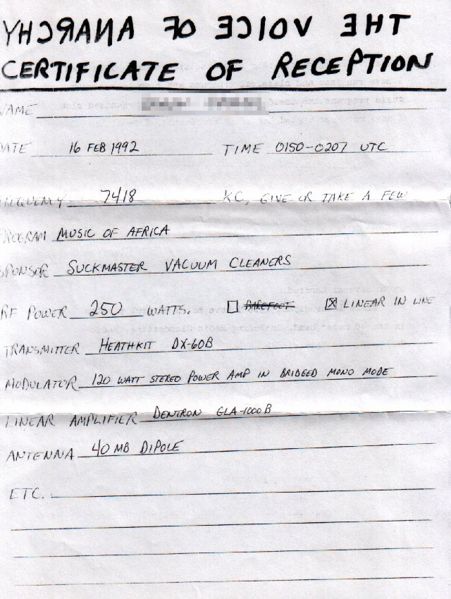 THE VOICE OF ANARCHY
CERTIFICATE OF RECEPTION
NAME
DATE 16 FEB 1992 TIME 0150-0207 UTC
FREQUENCY 7418 KC, GIVE OR TAKE A FEW
PROGRAM MUSIC OF AFRICA
SPONSOR SUCKMASTER VACUUM CLEANERS
RF POWER 250 WATTS. ☐ BAREFOOT ☒ LINEAR IN LINE
TRANSMITTER HEATHKIT DX-60B
MODULATOR 120 WATT STEREO POWER AMP IN BRIDGED MONO MODE
LINEAR AMPLIFIER DENTRON GLA-1000B
ANTENNA 40 MB DIPOLE
ETC.